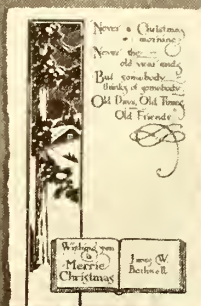 Never a Christmas
morning
Never the
old year ends
But somebody
thinks of somebody
Old Days, Old Times
Old Friends
Wishing you
a
Merrie
Christmas
James W.
Bothwell